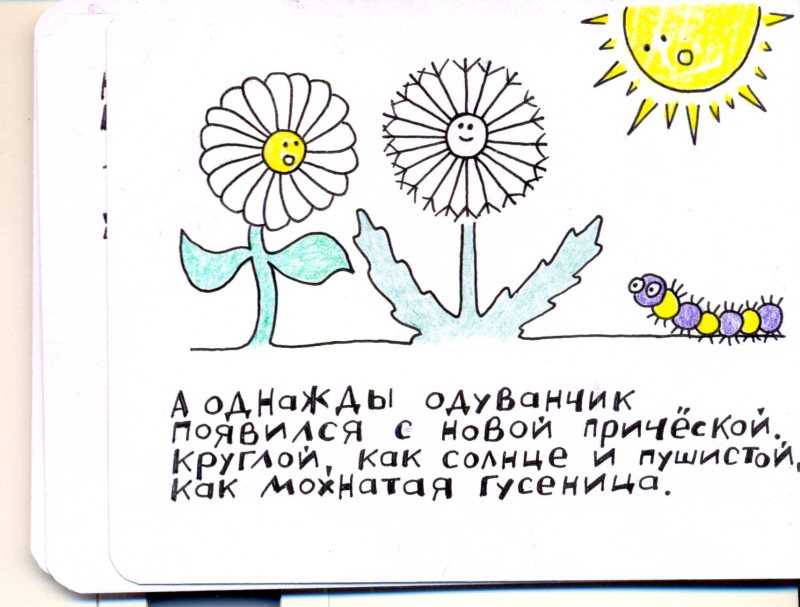 А однажды одуванчик
появился с новой причёской.
круглой, как солнце и пушистой,
как мохнатая гусеница.